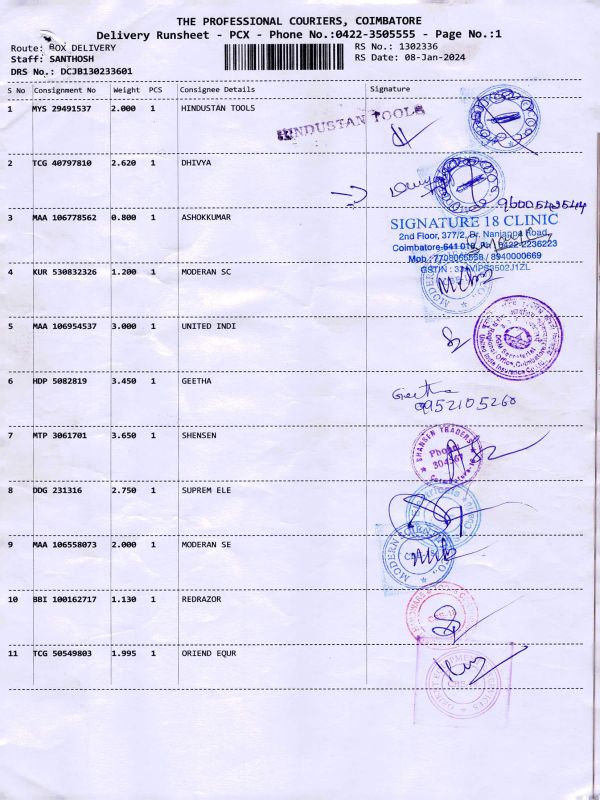 THE PROFESSIONAL COURIERS, COIMBATORE
Delivery Runsheet - PCX - Phone No.:0422-3505555 - Page No.:1
Route: BOX DELIVERY RS No.: 1302336
Staff: SANTHOSH RS Date: 08-Jan-2024
DRS No.: DCJB130233601
S No Consignment No Weight PCS Consignee Details Signature
1 MYS 29491537 2.000 1 HINDUSTAN TOOLS
HINDUSTAN TOOLS
2 TCG 40797810 2.620 1 DHIVYA
9600543544
3 MAA 106778562 0.800 1 ASHOKKUMAR
SIGNATURE 18 CLINIC
2nd Floor, 377/2, Dr. Nanjappa Road,
Coimbatore-641 018. Ph: 0422-2236223
Mob : 7708065556 / 8940000669
4 KUR 530832326 1.200 1 MODERAN SC
MODERN
5 MAA 106954537 3.000 1 UNITED INDI
6 HDP 5082819 3.450 1 GEETHA
Geetha
9952105260
7 MTP 3061701 3.650 1 SHENSEN
SHANSEN TRADERS
Phone:
8 DDG 231316 2.750 1 SUPREM ELE
9 MAA 106558073 2.000 1 MODERAN SE
MODERN
10 BBI 100162717 1.130 1 REDRAZOR
11 TCG 50549803 1.995 1 ORIEND EQUR